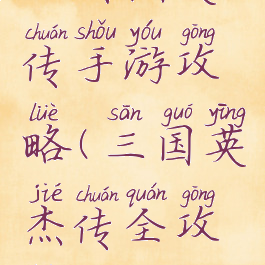 chuán shǒu yóu gōng
传手游攻
lüè sān guó yīng
略(三国英
jié chuán quán gōng
杰传全攻